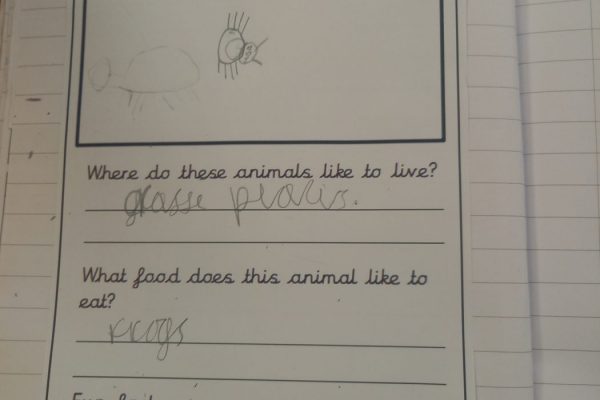 Where do these animals like to live?
grasse plais.
What food does this animal like to
eat?